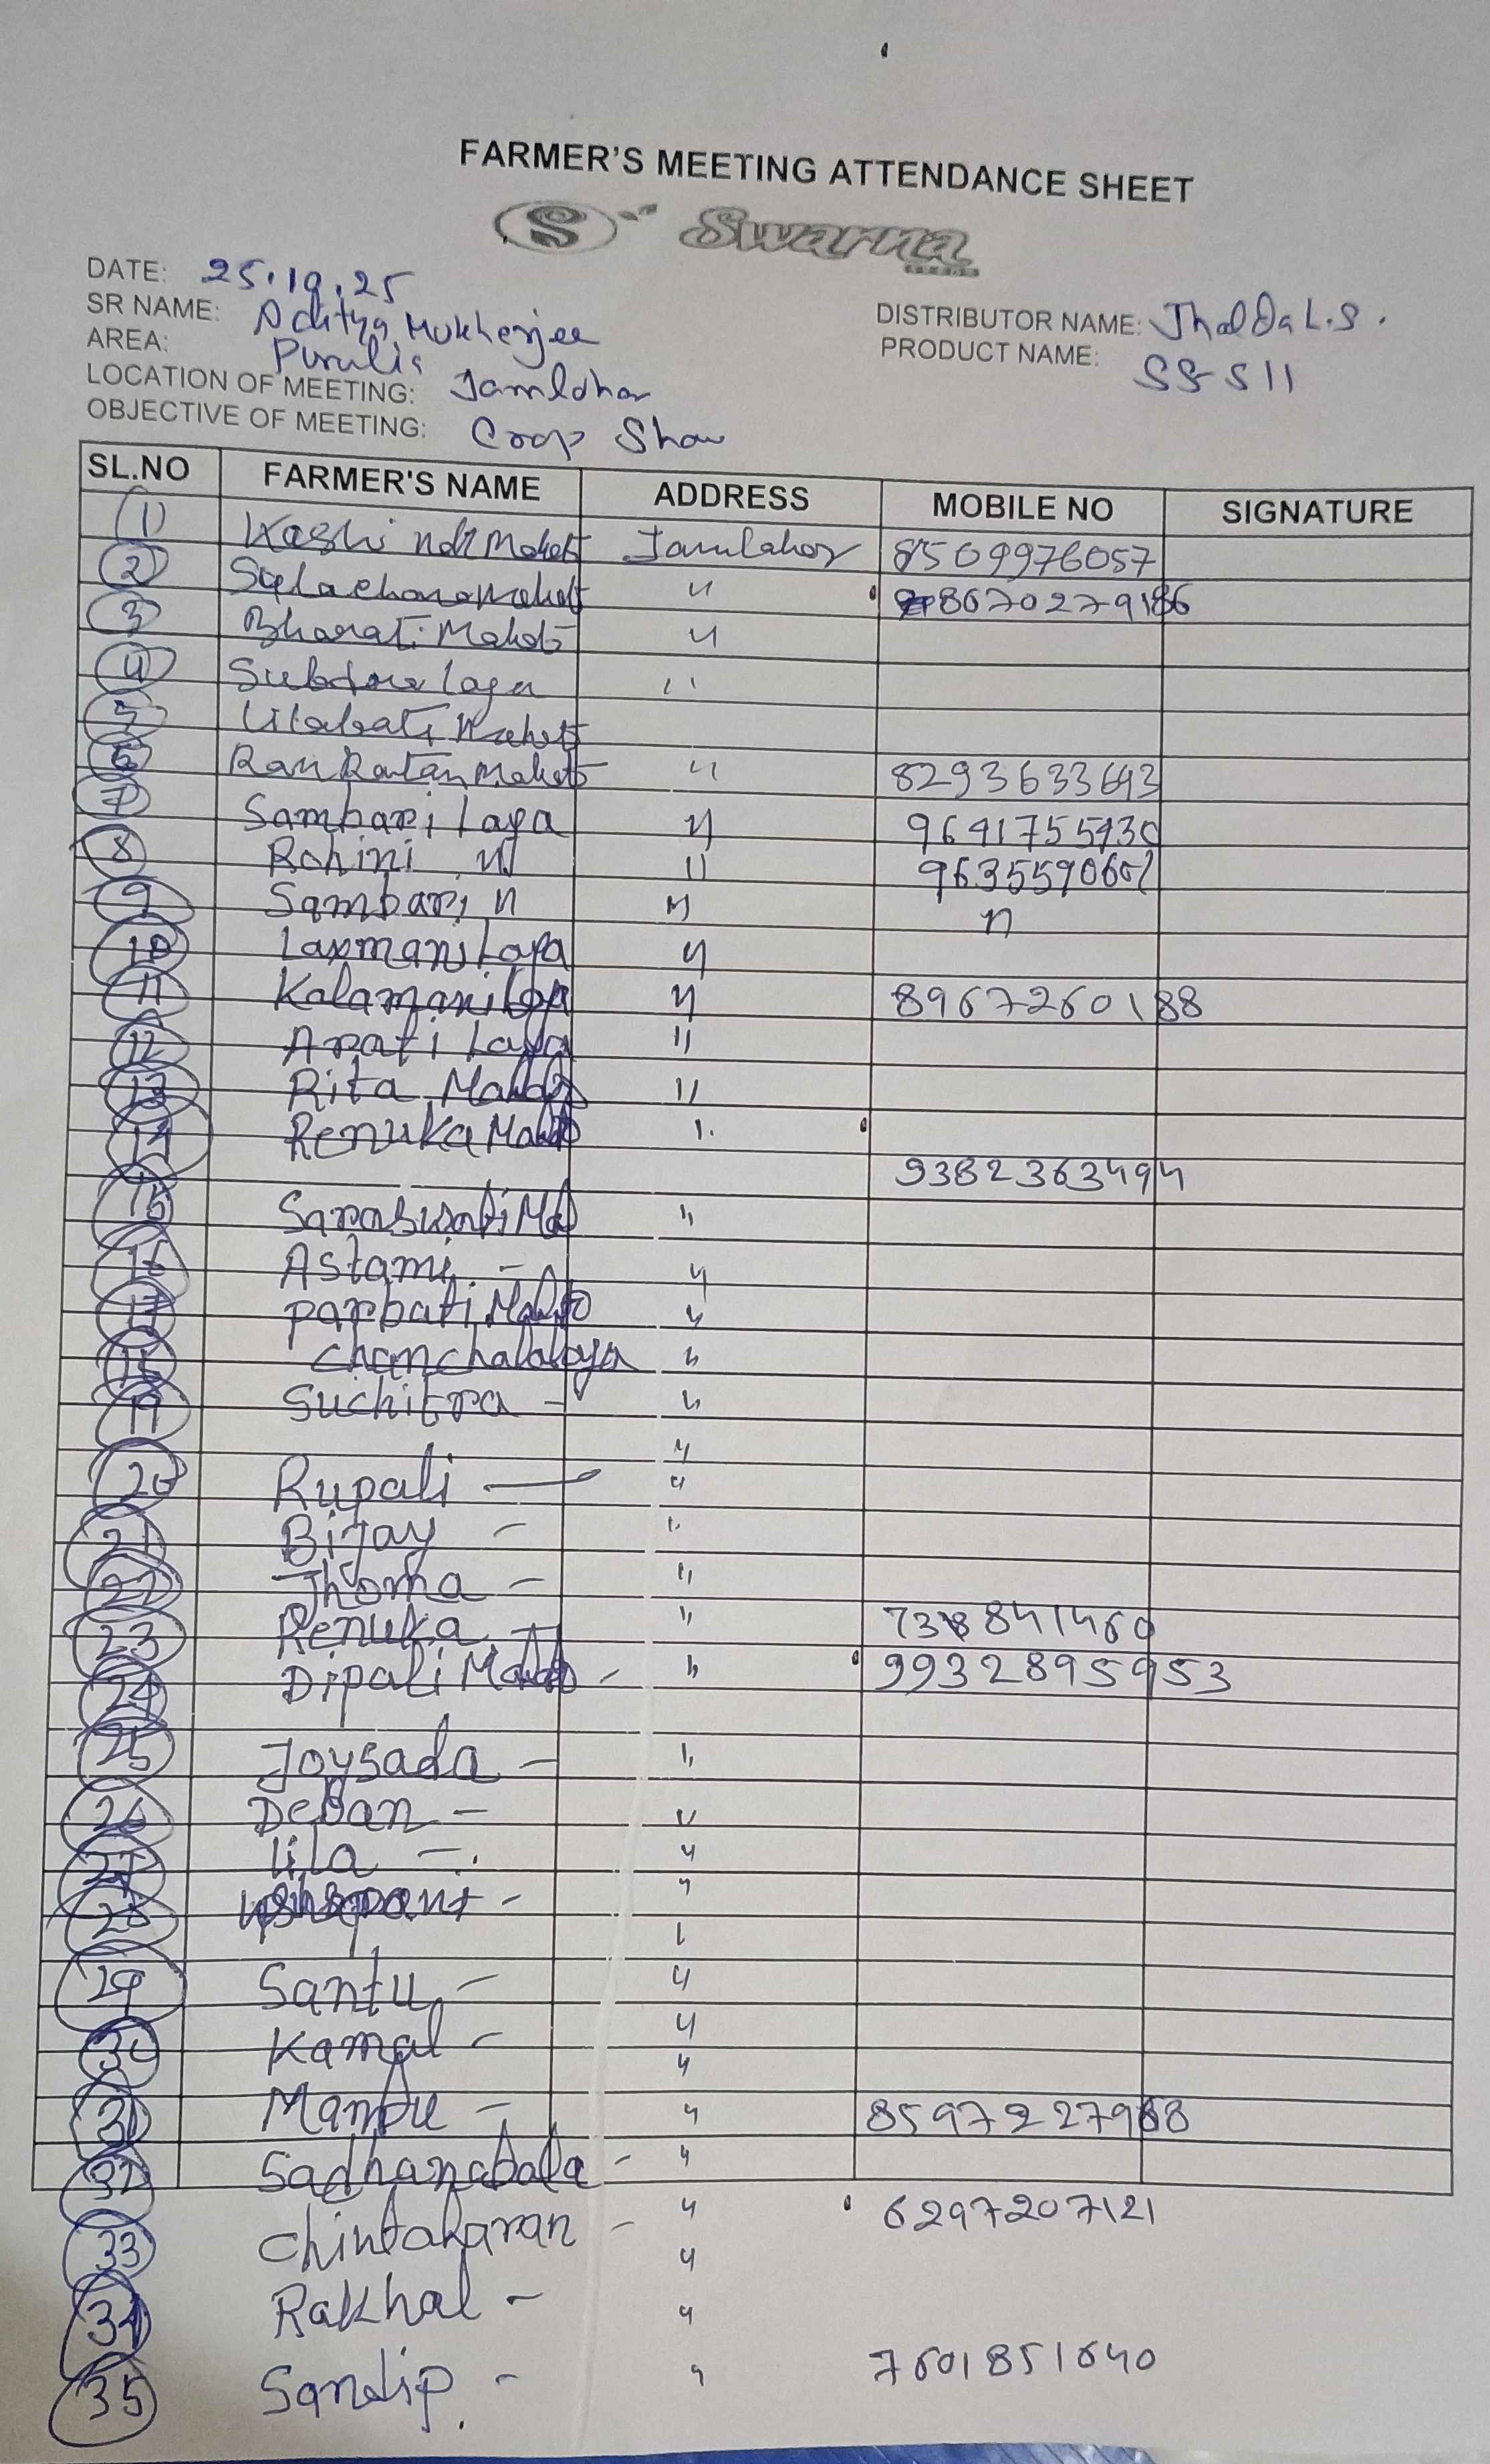 FARMER'S MEETING ATTENDANCE SHEET
S Swarna
DATE: 25.10.25
SR NAME: Aditya Mukherjee
DISTRIBUTOR NAME: Jhalda L.S.
AREA: Purulia
PRODUCT NAME: SS-511
LOCATION OF MEETING: Jamldhar
OBJECTIVE OF MEETING: Crop Show
SL.NO FARMER'S NAME ADDRESS MOBILE NO SIGNATURE
1 Kashi Mahato 8509976057
2 " 8670279186
3 Bharati Mahato "
4 Laya "
5
6 Ram Ratan Mahato " 8293633643
7 Sambari Laya "
8 Rohini " "
9 Sambari " " "
10 Laxmani Laya "
11 Kalamani Laya " 8967260188
12 Arati Laya "
13 Rita Mahato "
14 Renuka Mahato "
9382363494
15 Saraswati "
16 Astami - "
17 Parbati Mahato "
18 Chanchala Laya "
19 Suchitra - "
"
20 Rupali - "
21 Bijay - "
22 Jhoma - "
23 Renuka - "
24 Dipali Mahato - " 9932895953
25 Joysada - "
26 Deban - "
27 lila - "
28 "
29 Santu - "
30 Kamal - "
"
31 - " 8597227968
32 Sadhanabala - "
33 - " 6297207121
"
34 Rakhal - "
35 Sandip. - " 7601851640